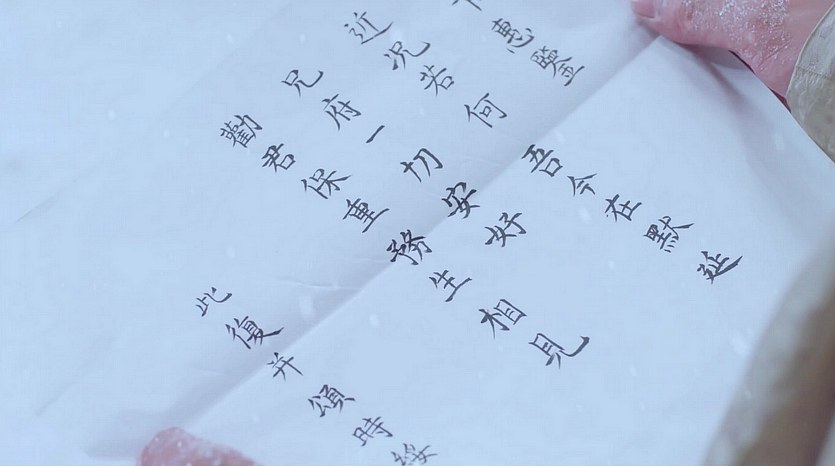 惠鑒
近況若何吾今在默延
兄府一切安好
勸君保重務生相見
此復并頌時綏